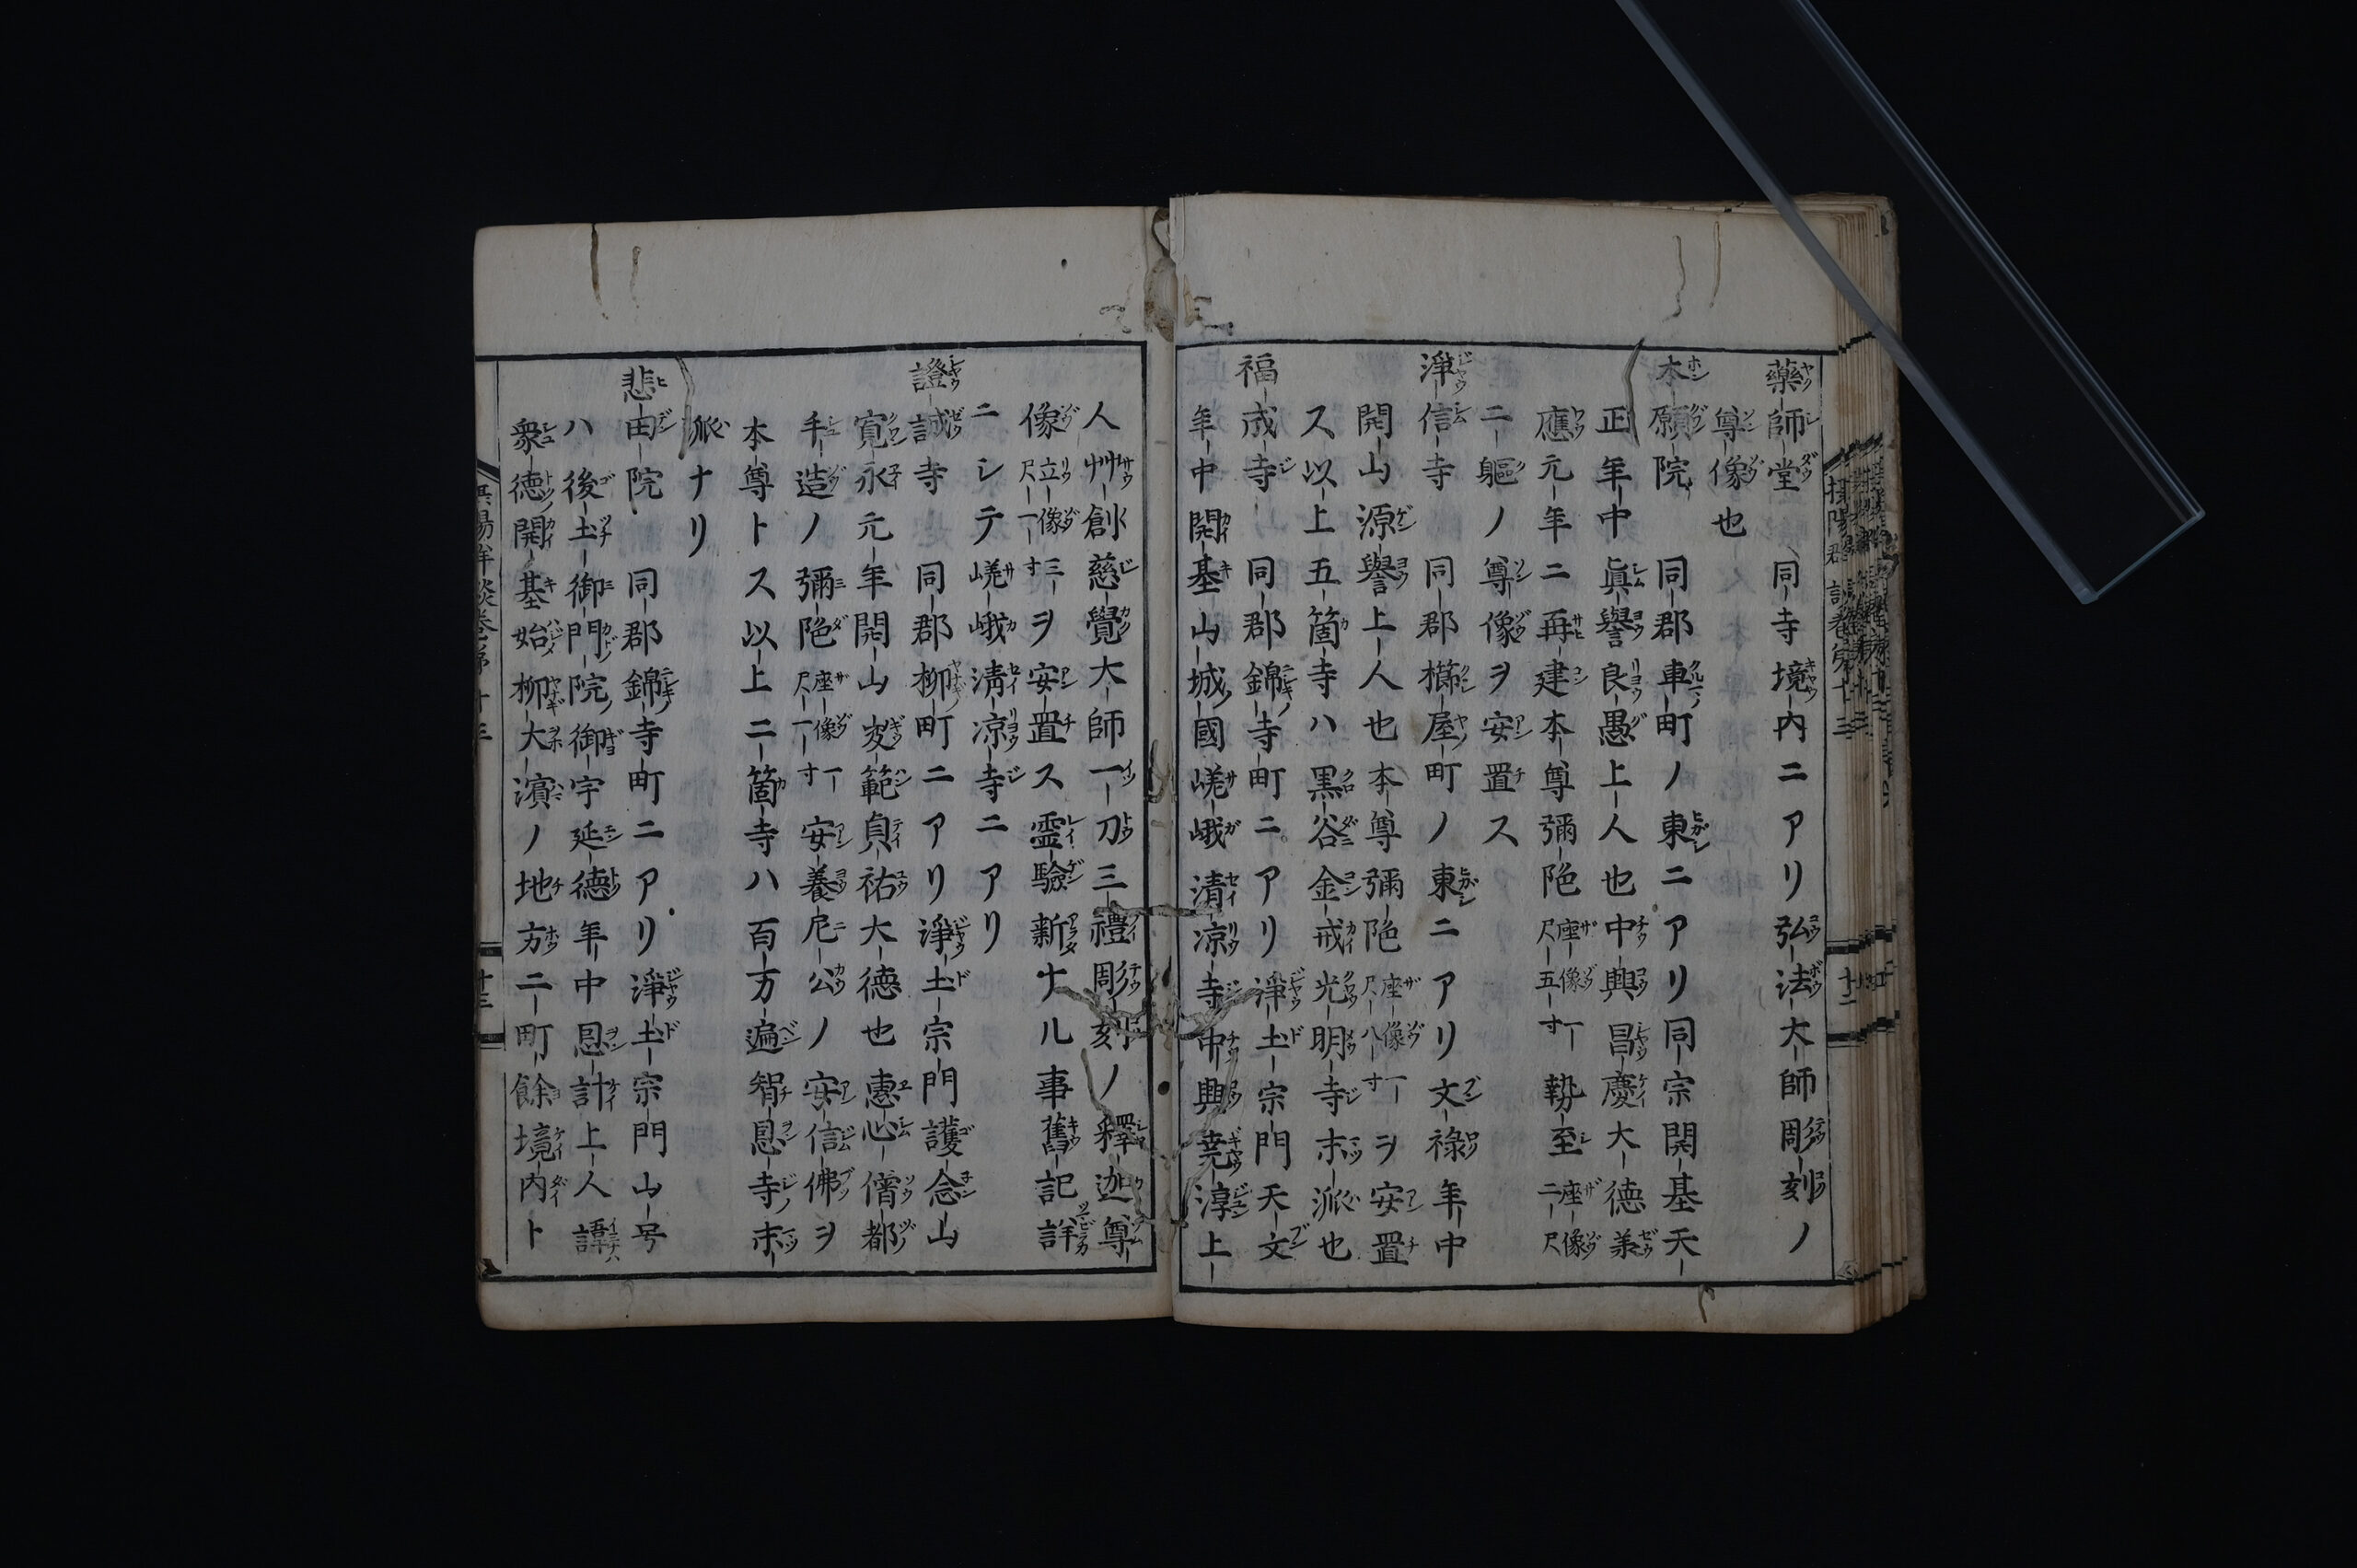 藥師堂　同寺境内ニアリ弘法大師彫刻ノ
尊像也
本願院　同郡車町ノ東ニアリ同宗開基天
正年中眞譽良愚上人也中興昌慶大德兼
應元年ニ再建本尊彌陀座像一尺五寸勢至座像二尺
二軀ノ尊像ヲ安置ス
淨信寺　同郡櫛屋町ノ東ニアリ文祿年中
開山源譽上人也本尊彌陀座像一尺八寸ヲ安置
ス以上五箇寺ハ黒谷金戒光明寺末派也
福成寺　同郡錦寺町ニアリ淨土宗門天文
年中開基山城國嵯峨清凉寺中興堯淳上
人艸創慈覺大師一刀三禮彫刻ノ釋迦尊
像立像三尺一寸ヲ安置ス霊驗新ナル事舊記詳
ニシテ嵯峨清凉寺ニアリ
證誠寺　同郡柳町ニアリ淨土宗門護念山
寛永元年開山範貞祐大德也惠心僧都
手造ノ彌陀座像一尺一寸安養尼公ノ安信佛ヲ
本尊トス以上二箇寺ハ百万遍智恩寺末
派ナリ
悲田院　同郡錦寺町ニアリ淨土宗門山号
ハ後土御門院御宇延德年中恩計上人諱
衆德開基始柳大濱ノ地方二町餘境内ト
十三
十二